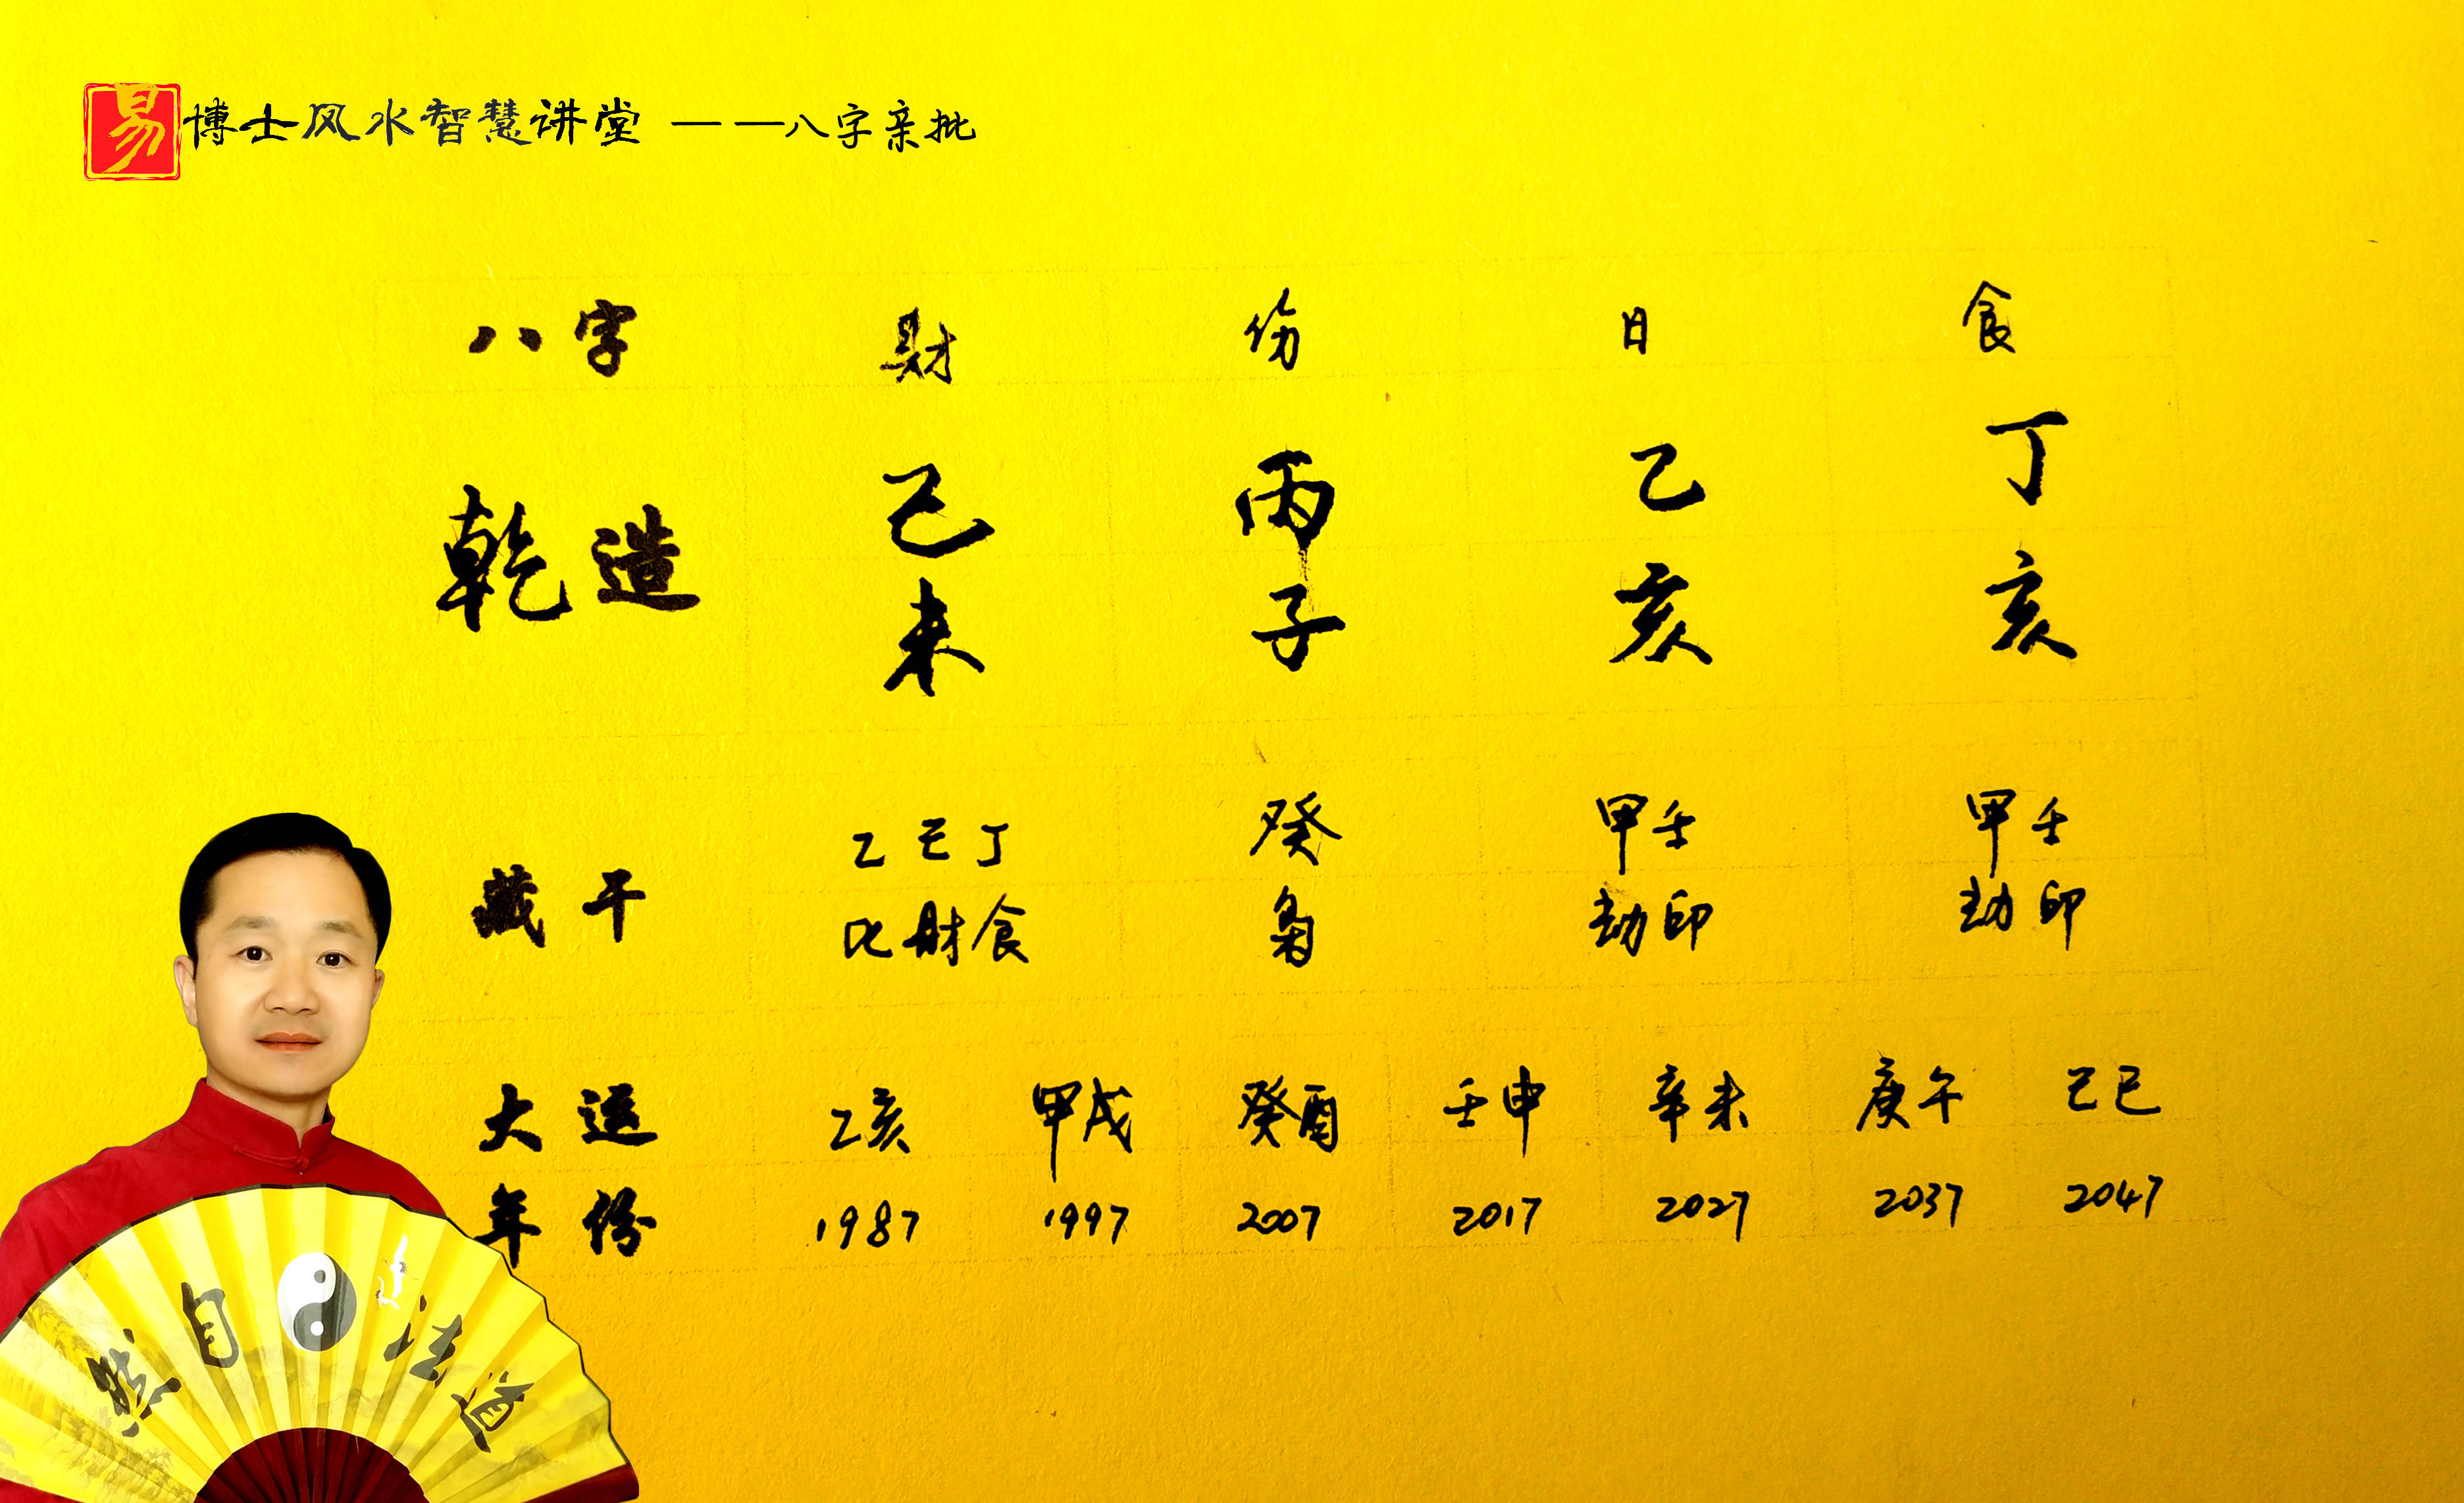 易博士风水智慧讲堂 ——八字亲批
八字 财 伤 日 食
乾造 己 丙 乙 丁
未 子 亥 亥
藏干 乙 己 丁 癸 甲 壬 甲 壬
比 财 食 枭 劫 印 劫 印
大运 乙亥 甲戌 癸酉 壬申 辛未 庚午 己巳
年份 1987 1997 2007 2017 2027 2037 2047
道法自然